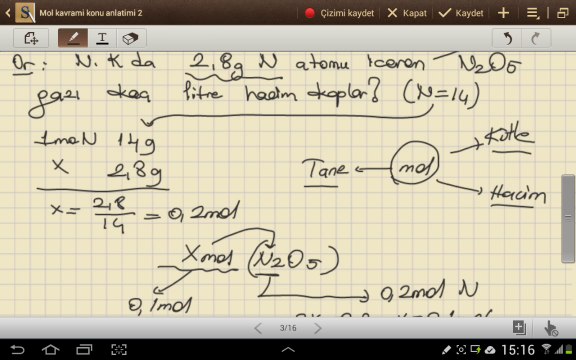 Mol kavrami konu anlatimi 2
Çizimi kaydet
Kapat
Kaydet
Ör: N.K da 2,8g N atomu iceren N2O5
gazı kaç litre hacim kaplar? (N=14)
1mol N 14g
X 2,8g
x = 2,8/14 = 0,2mol
Tane
mol
Kütle
Hacim
Xmol (N2O5)
0,1mol
0,2mol N
3/16
15:16